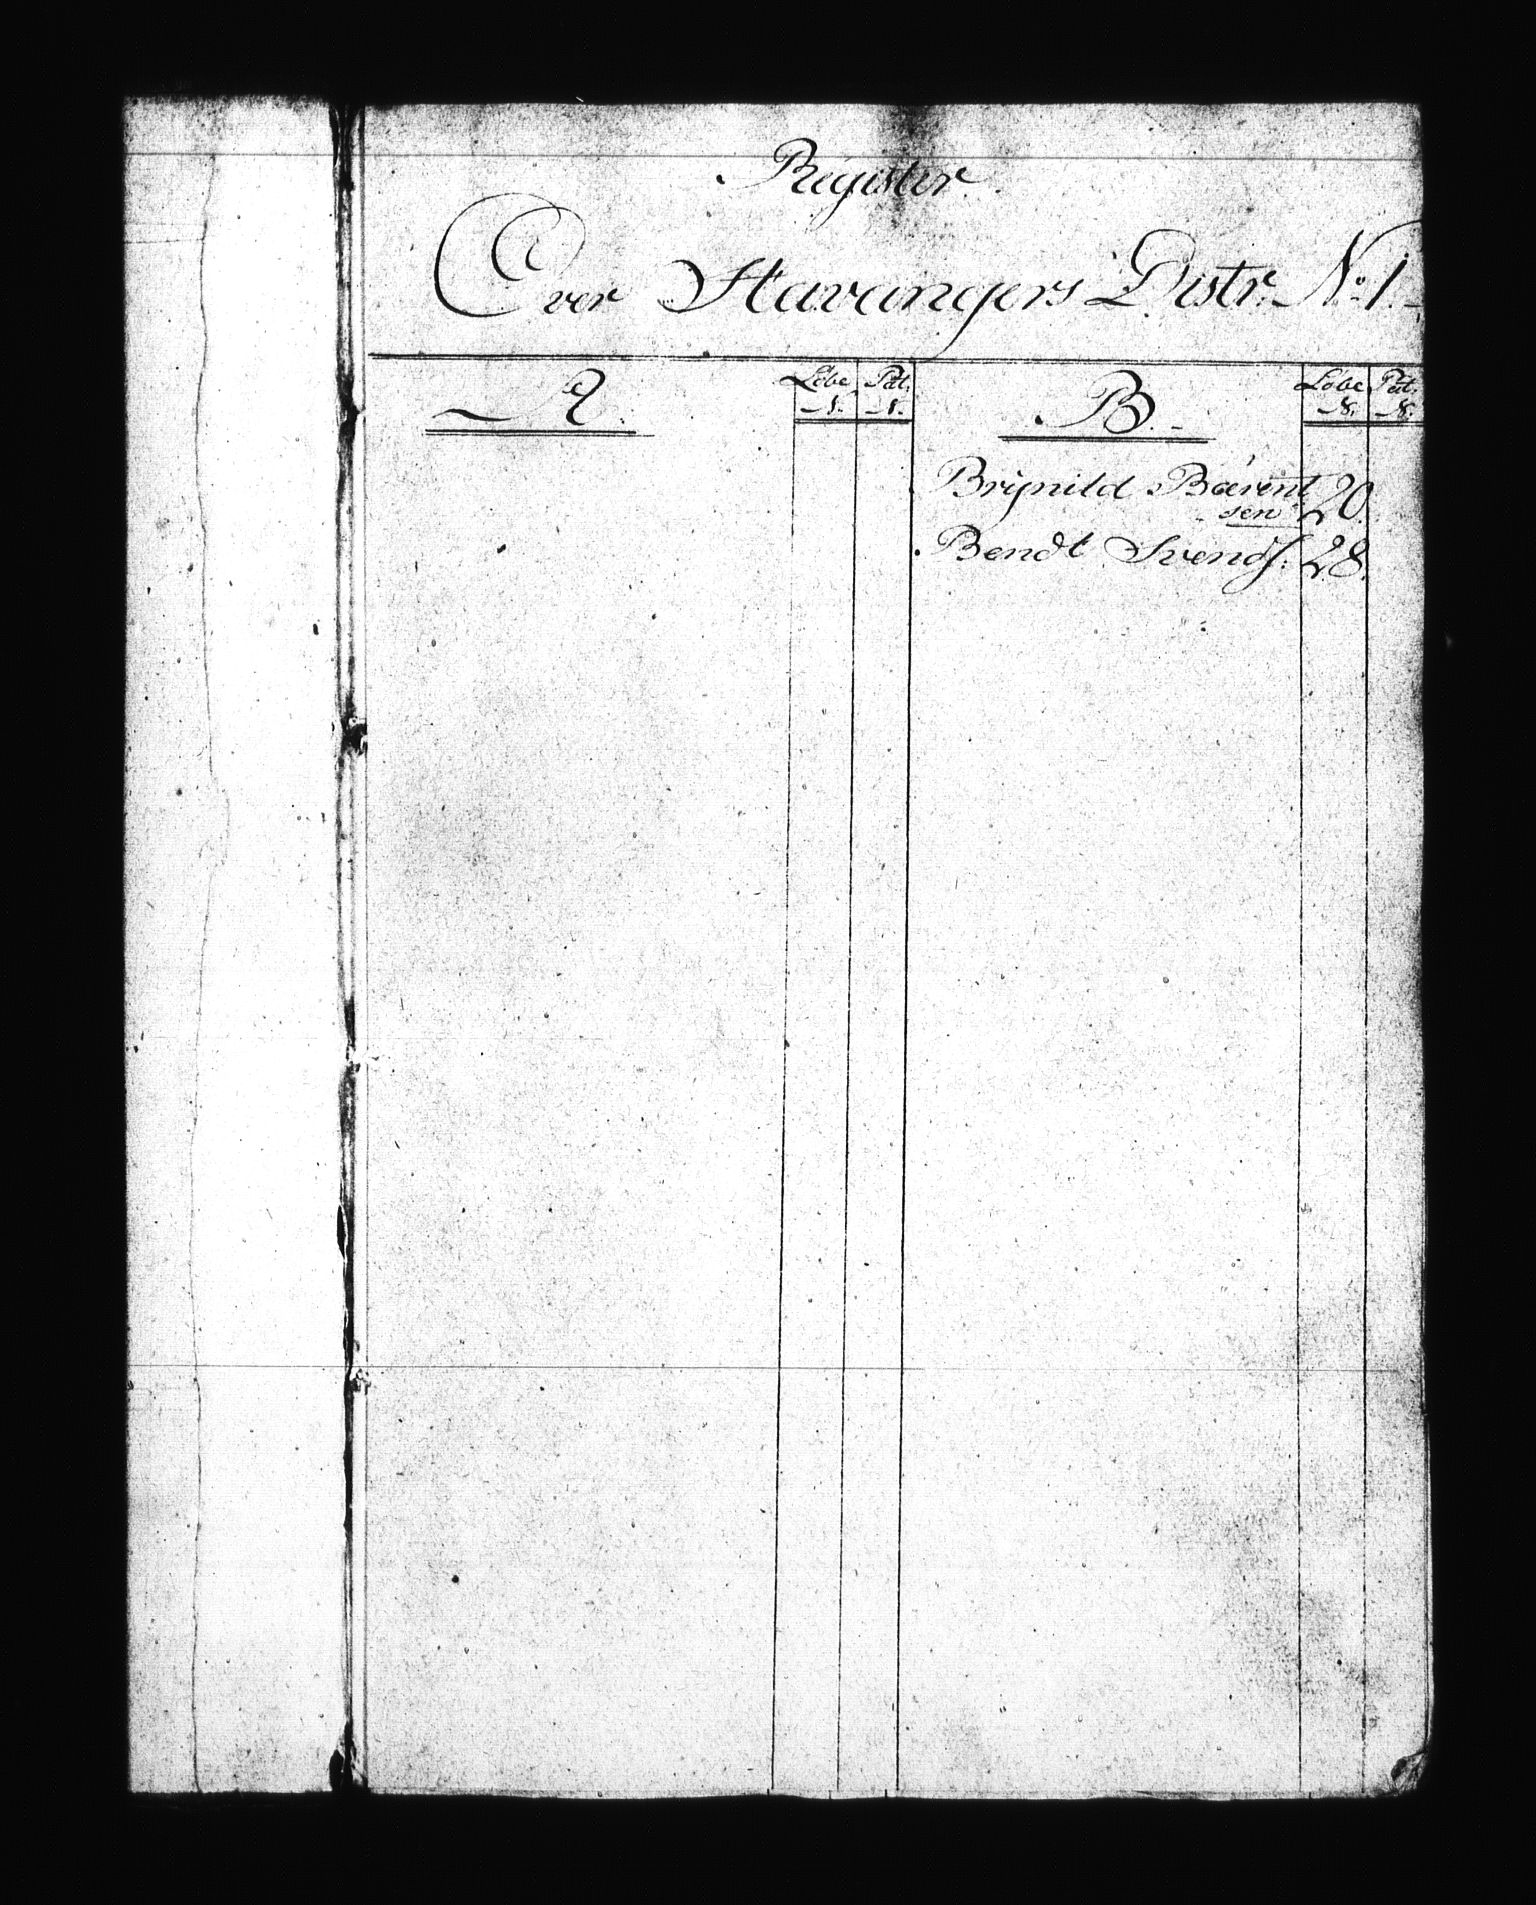 Register
Over Stavangers Distr. No. 1.
A.
Löbe Pat.
N. N.
B.
Löbe Pat.
N. N.
Brynild Bærent
sen 20.
Bendt Svends: 28.